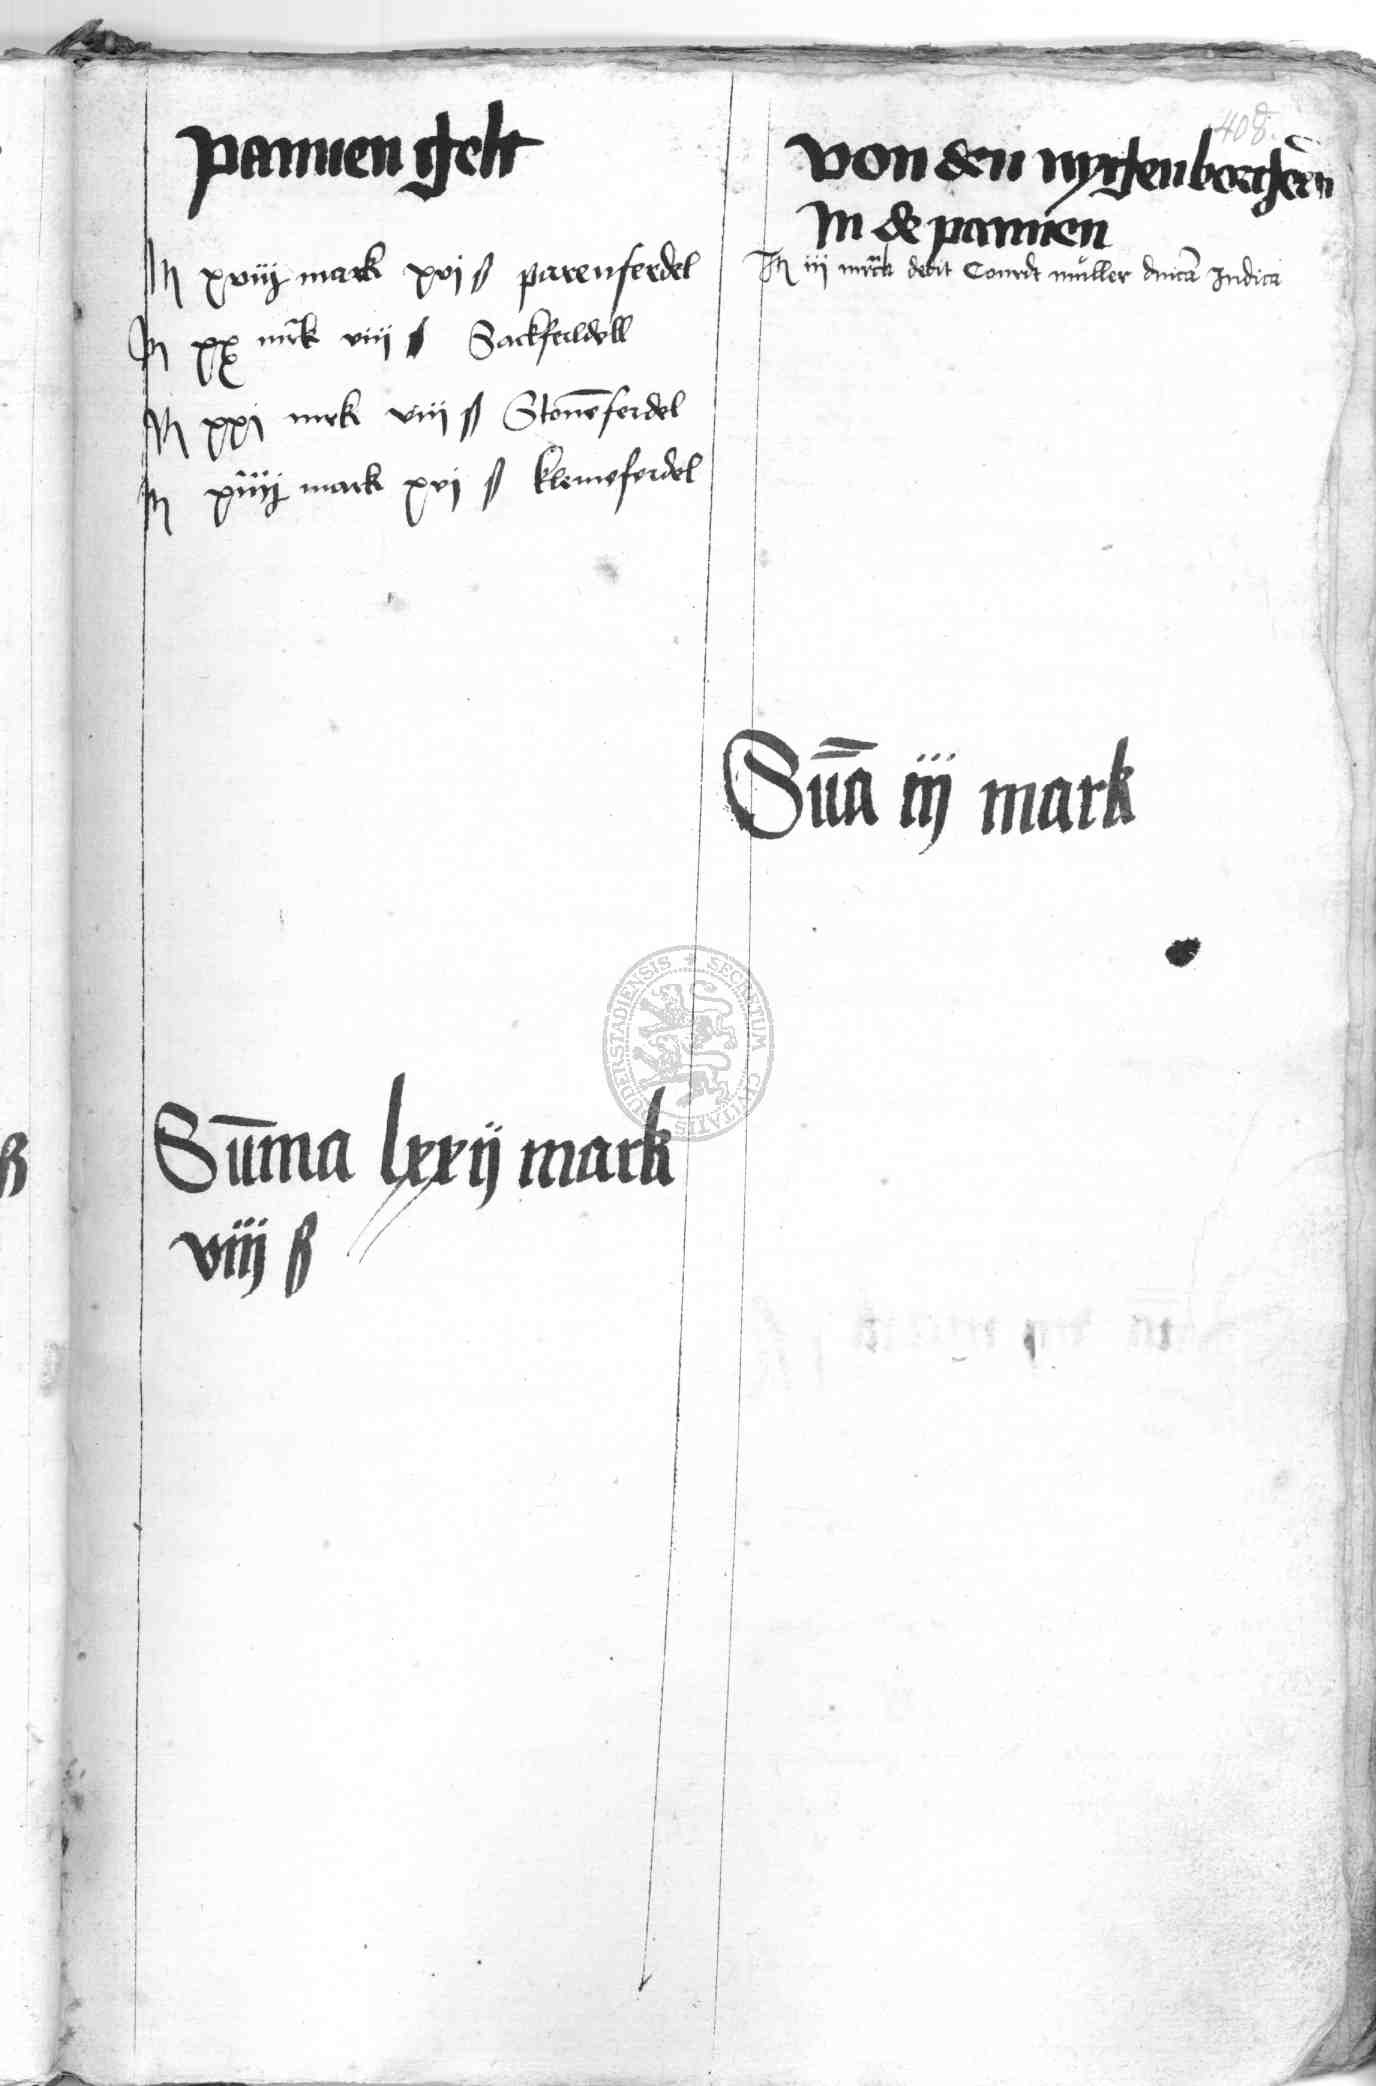 pannen gelt
It xviij mark xvi ß parenferdel
It xx mrk viij ß Sackferdell
It xxi mrk viij ß Stone̅ferdel
It xiiij mark xvj ß klemeferdel
Su̅ma lxxij mark
viij ß
408
von den nygen borgern
In de pannen
It iij mark dedit Conrdt müller dnica Judica
Su̅a iij mark
SECRETUM CIVITATIS DUDERSTADIENSIS
ß